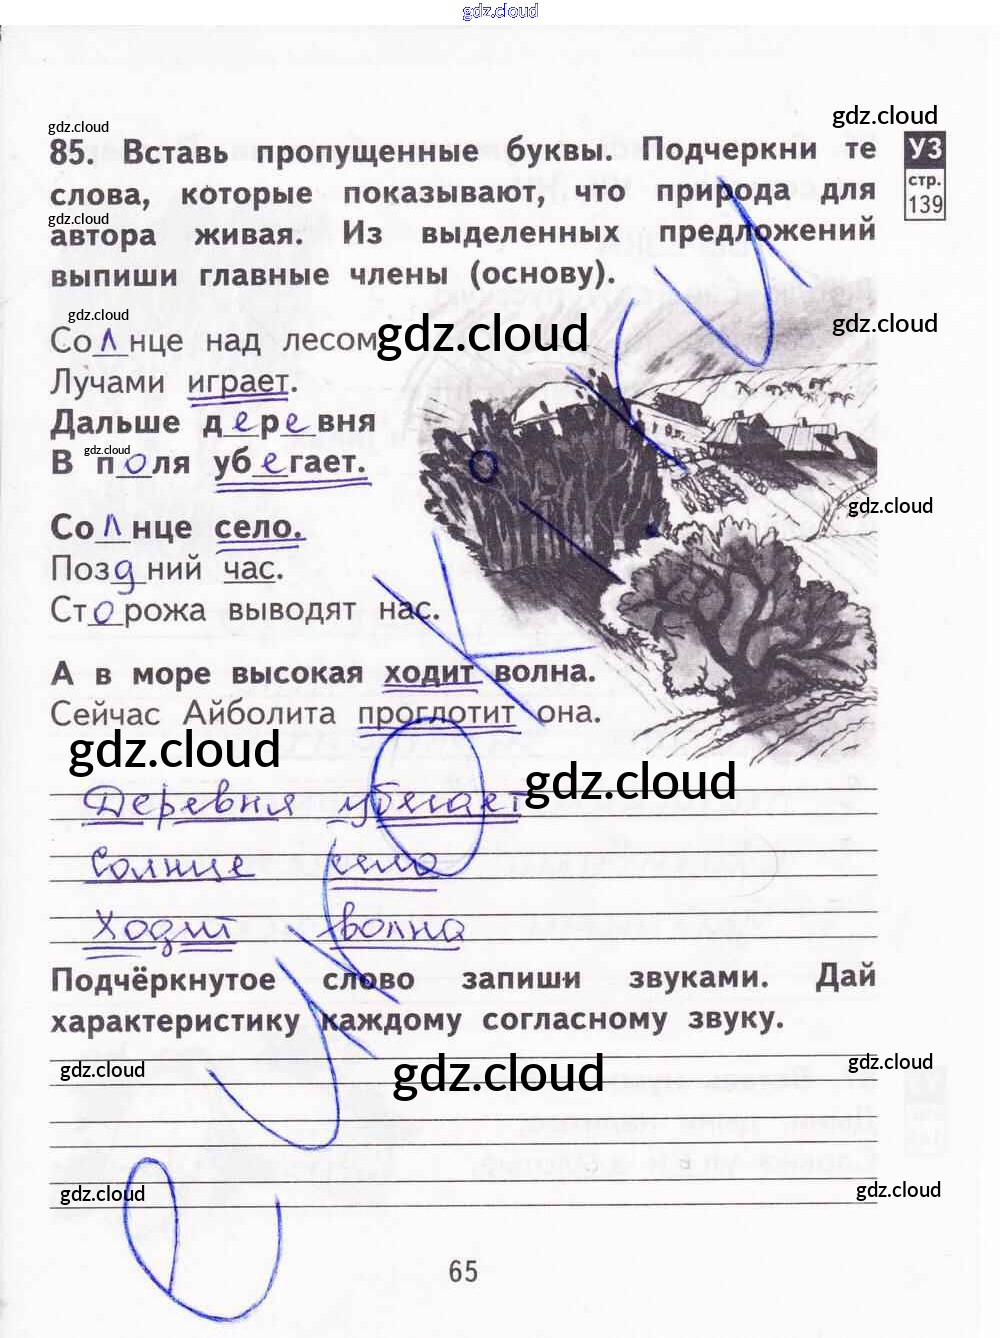 gdz.cloud
gdz.cloud
gdz.cloud
85. Вставь пропущенные буквы. Подчеркни те
слова, которые показывают, что природа для
gdz.cloud
автора живая. Из выделенных предложений
выпиши главные члены (основу).
УЗ
стр.
139
gdz.cloud
gdz.cloud
gdz.cloud
Солнце над лесом
Лучами играет.
Дальше деревня
gdz.cloud
В поля убегает.
gdz.cloud
Солнце село.
Поздний час.
Сторожа выводят нас.
А в море высокая ходит волна.
Сейчас Айболита проглотит она.
gdz.cloud
gdz.cloud
Деревня убегает
солнце село
Ходит волна
Подчёркнутое слово запиши звуками. Дай
характеристику каждому согласному звуку.
gdz.cloud
gdz.cloud
gdz.cloud
gdz.cloud
gdz.cloud
65